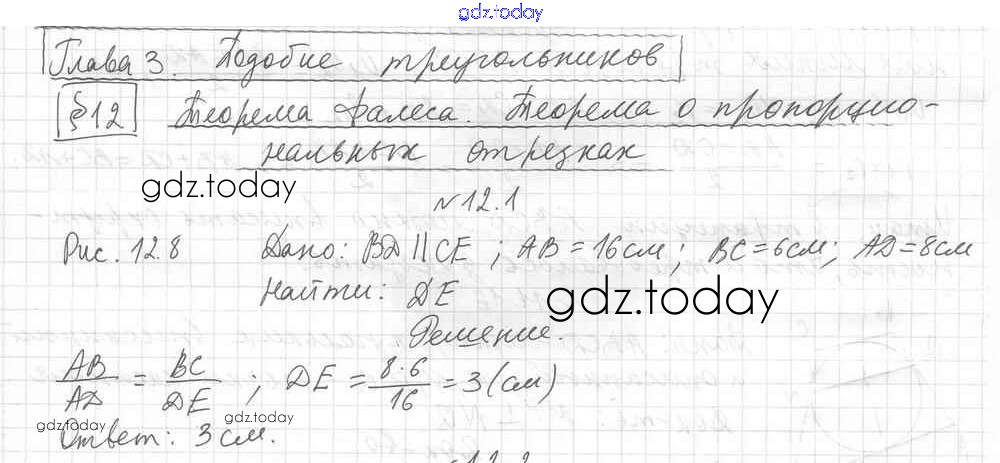 gdz.today
Глава 3. Подобие треугольников
§12 Теорема Фалеса. Теорема о пропорцио-
нальных отрезках
gdz.today
№12.1
Рис. 12.8 Дано: BD || CE ; AB = 16 см ; BC = 6 см; AD = 8 см
Найти: DE
gdz.today
Решение.
AB/AD = BC/DE ; DE = 8·6/16 = 3 (см)
gdz.today gdz.today
Ответ: 3 см.